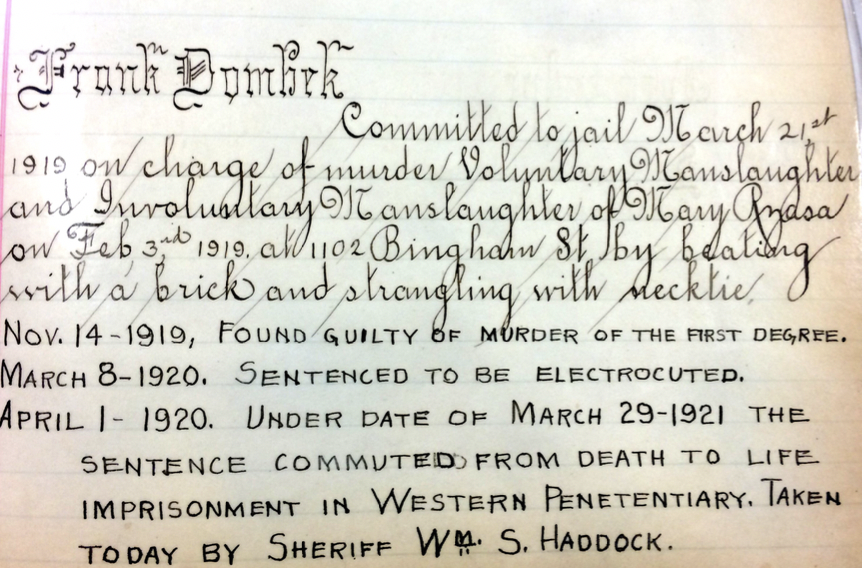 Frank Dombek
Committed to jail March 21,st
1919 on charge of murder Voluntary Manslaughter
and Involuntary Manslaughter of Mary Rzasa
on Feb, 3,rd 1919. at 1102 Bingham St, by beating
with a brick and strangling with necktie.
NOV. 14-1919, FOUND GUILTY OF MURDER OF THE FIRST DEGREE.
MARCH 8-1920. SENTENCED TO BE ELECTROCUTED.
APRIL 1- 1920. UNDER DATE OF MARCH 29-1921 THE
SENTENCE COMMUTED FROM DEATH TO LIFE
IMPRISONMENT IN WESTERN PENETENTIARY. TAKEN
TODAY BY SHERIFF WM. S. HADDOCK.